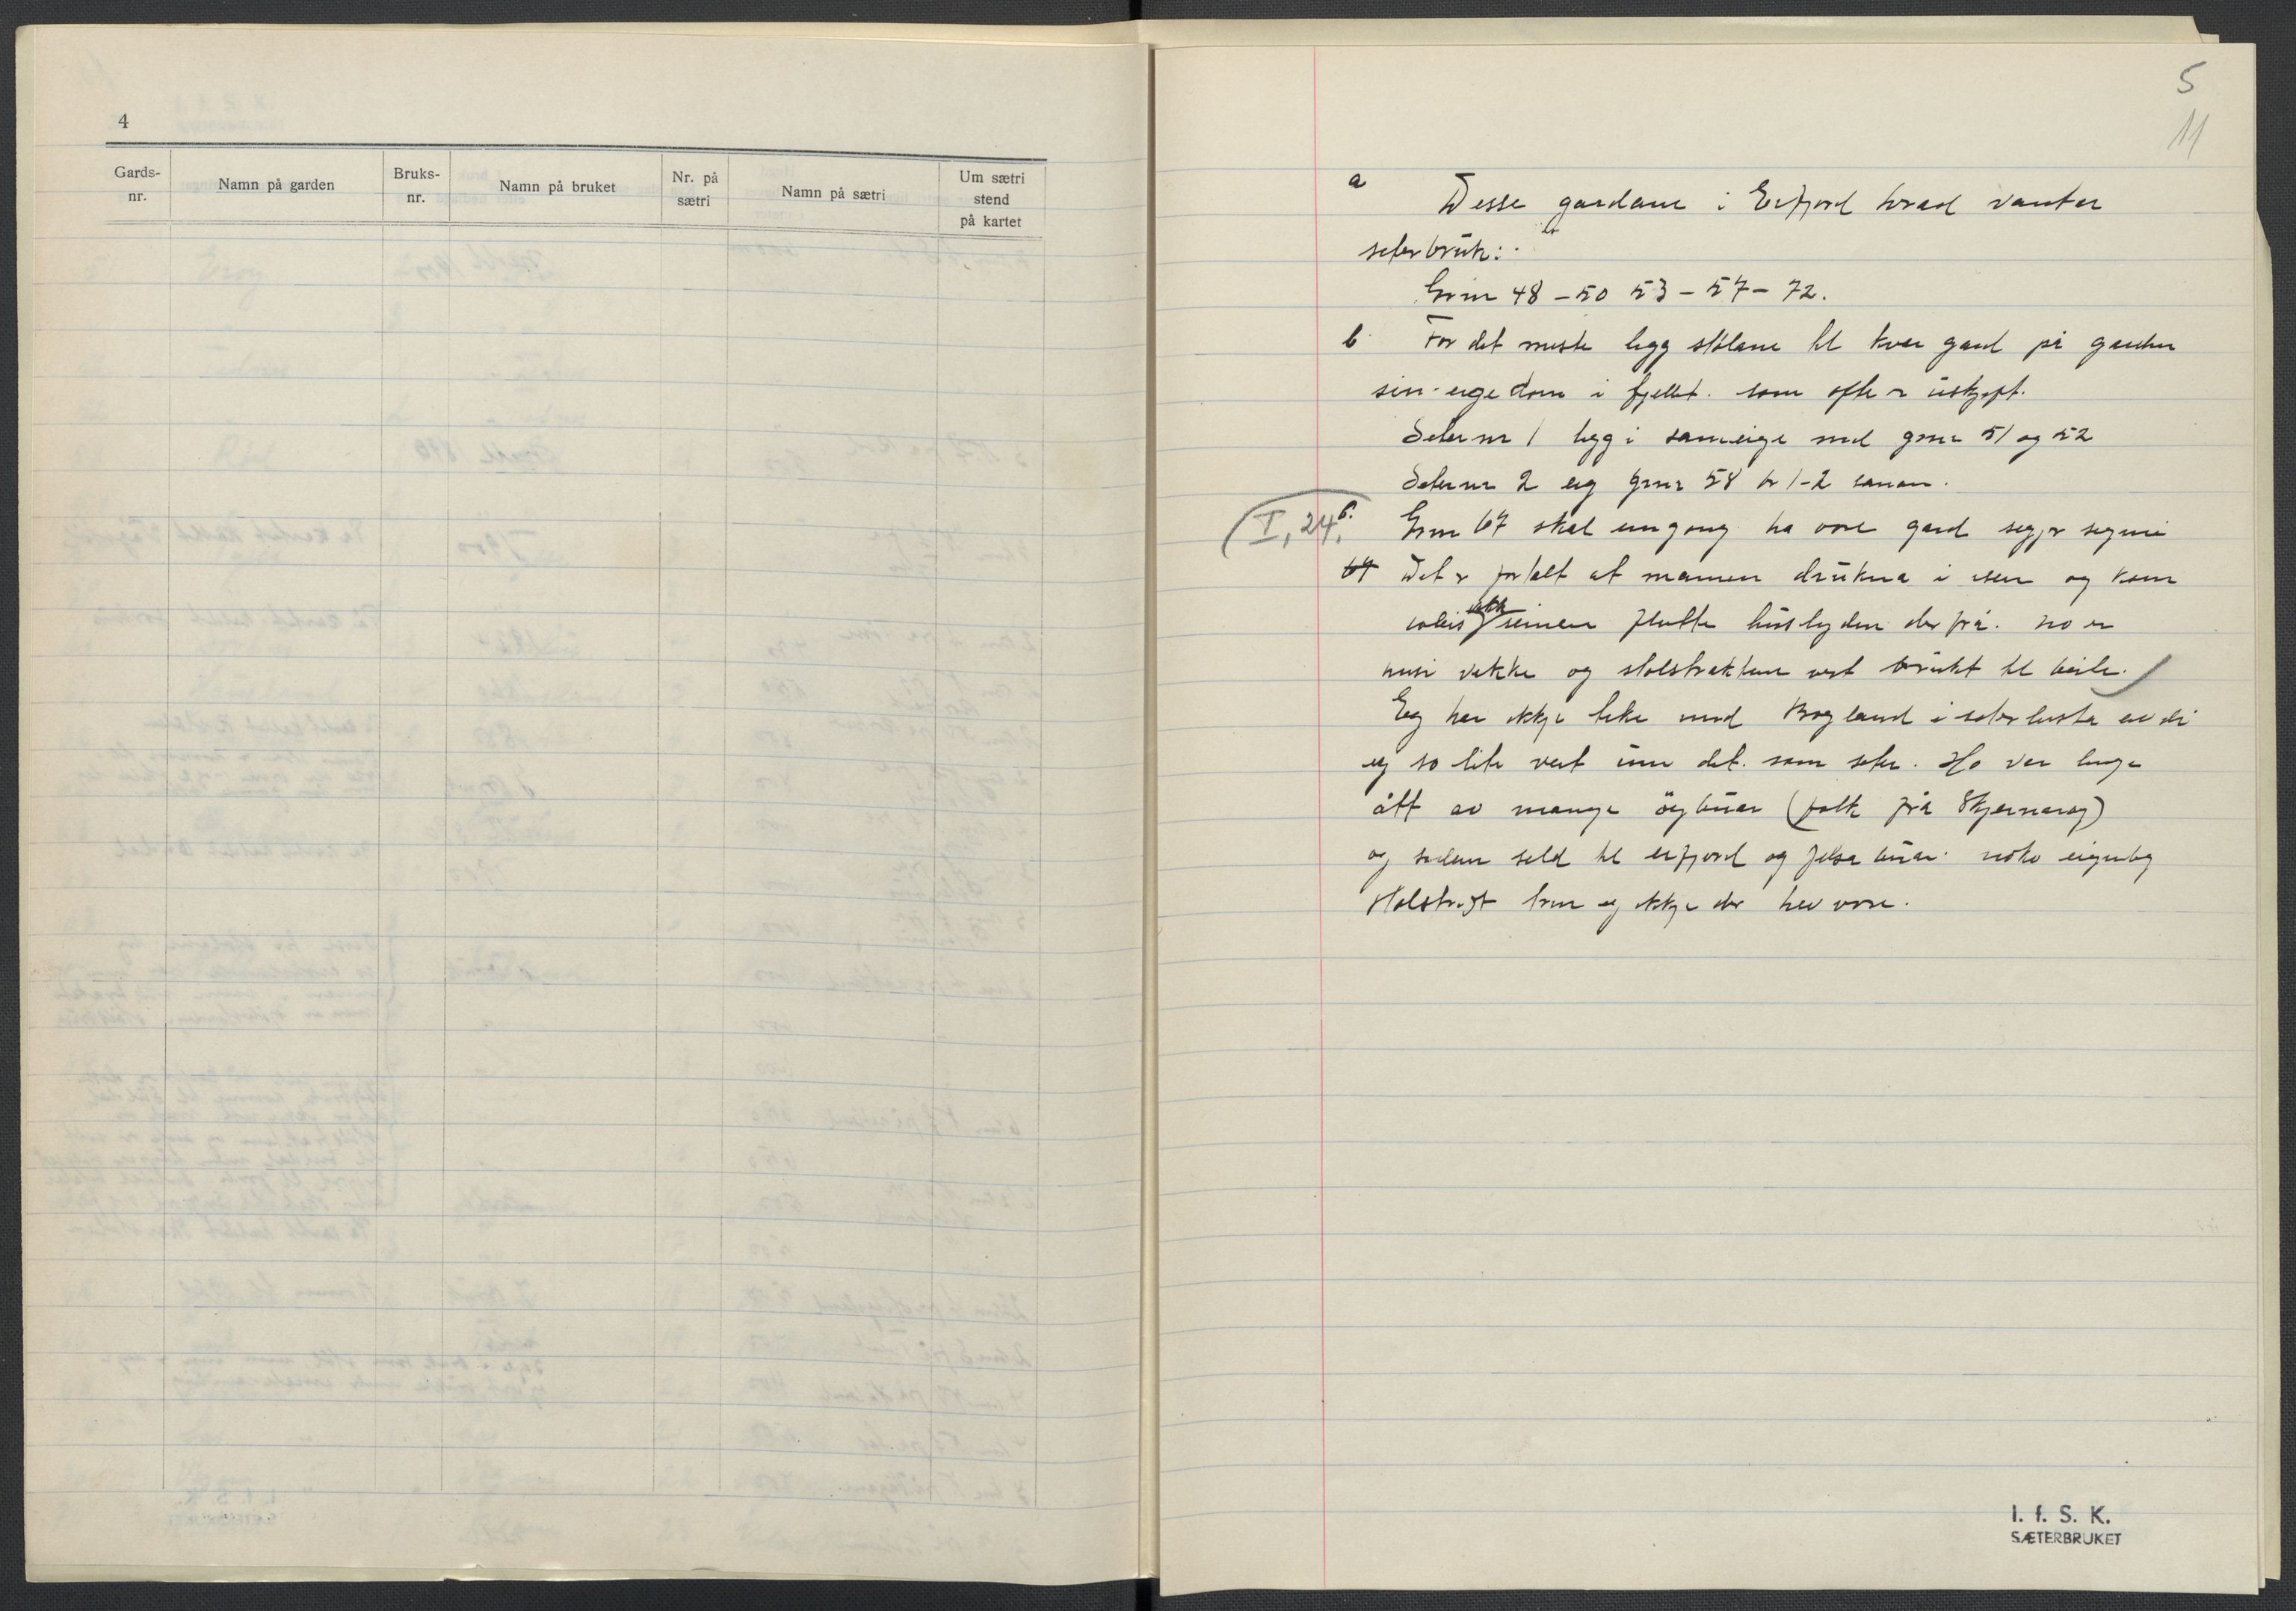 4
Gards-
nr.
Namn på garden
Bruks-
nr.
Namn på bruket
Nr. på
sætri
Namn på sætri
Um sætri
stend
på kartet
5
11
a
Desse gardane i Erfjord herad vantar
seterbruk:
Grnr 48 – 50 53 – 57 – 72.
b For det meste ligg stölane til kvar gard på garden
sin eigedom i fjellet. som ofte er uskift.
Seter nr 1 ligg i sameige med grnr 51 og 52
Seter nr 2 eig grnr 58 br 1-2 saman.
(I, 24. 6. Grnr 67 skal eingong ha vore gard segjer segni
Det er fortalt at mannen drukna i isen og kom
vekk seinare flutte huslyden der frå. no er
husi vekke og stolstraktene vert brukt til beite.
Eg har ikkje teke med Bogland i seterlista av di
eg so lite veit um det. som seter. Ho var lenge
ått av mange öybuar (folk frå Skjernaröy)
og sidan seld til erfjord og jelsa buar. noko eigenleg
stolsdrift trur eg ikkje der hev vore.
I. f. S. K.
SÆTERBRUKET